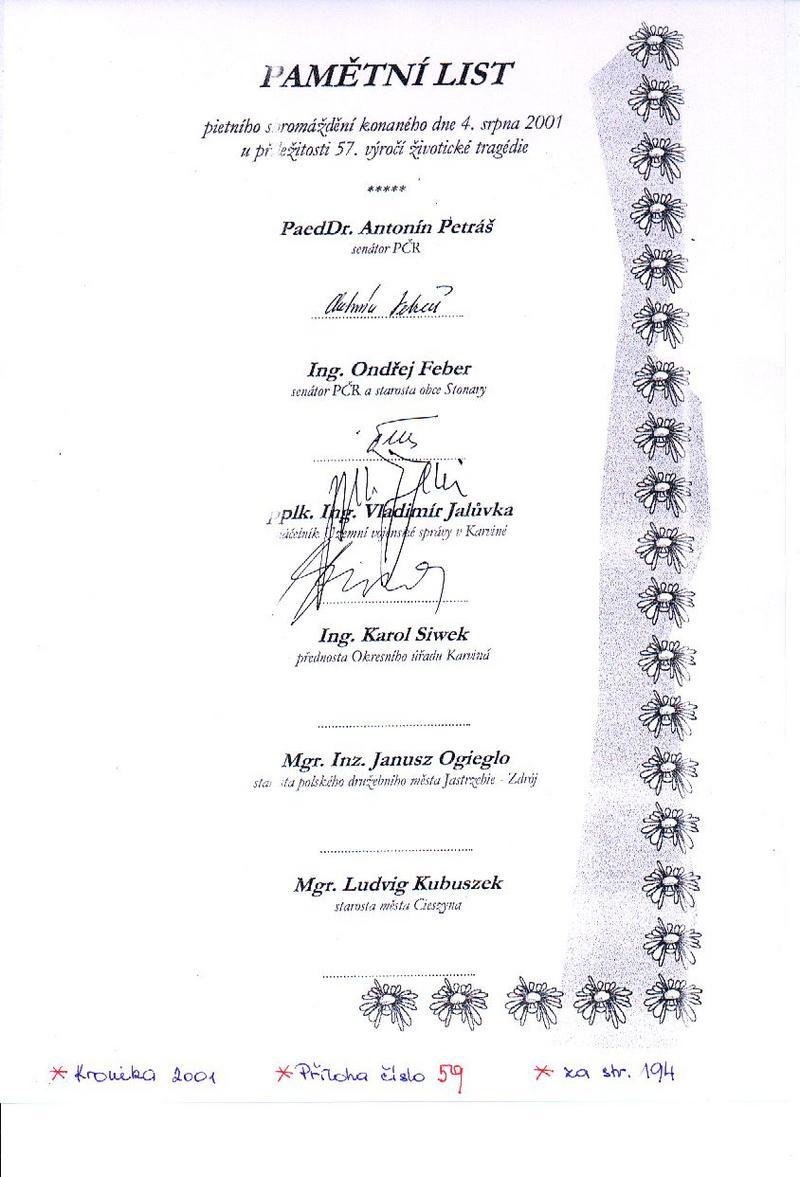 PAMĚTNÍ LIST
pietního shromáždění konaného dne 4. srpna 2001
u příležitosti 57. výročí životické tragédie
*****
PaedDr. Antonín Petráš
senátor PČR
Antonín Petráš
Ing. Ondřej Feber
senátor PČR a starosta obce Stonavy
pplk. Ing. Vladimír Jalůvka
náčelník Územní vojenské správy v Karviné
Ing. Karol Siwek
přednosta Okresního úřadu Karviná
Mgr. Inz. Janusz Ogieglo
starosta polského družebního města Jastrzebie - Zdrój
Mgr. Ludvig Kubuszek
starosta města Cieszyna
* Kronika 2001 * Příloha číslo 59 * za str. 194